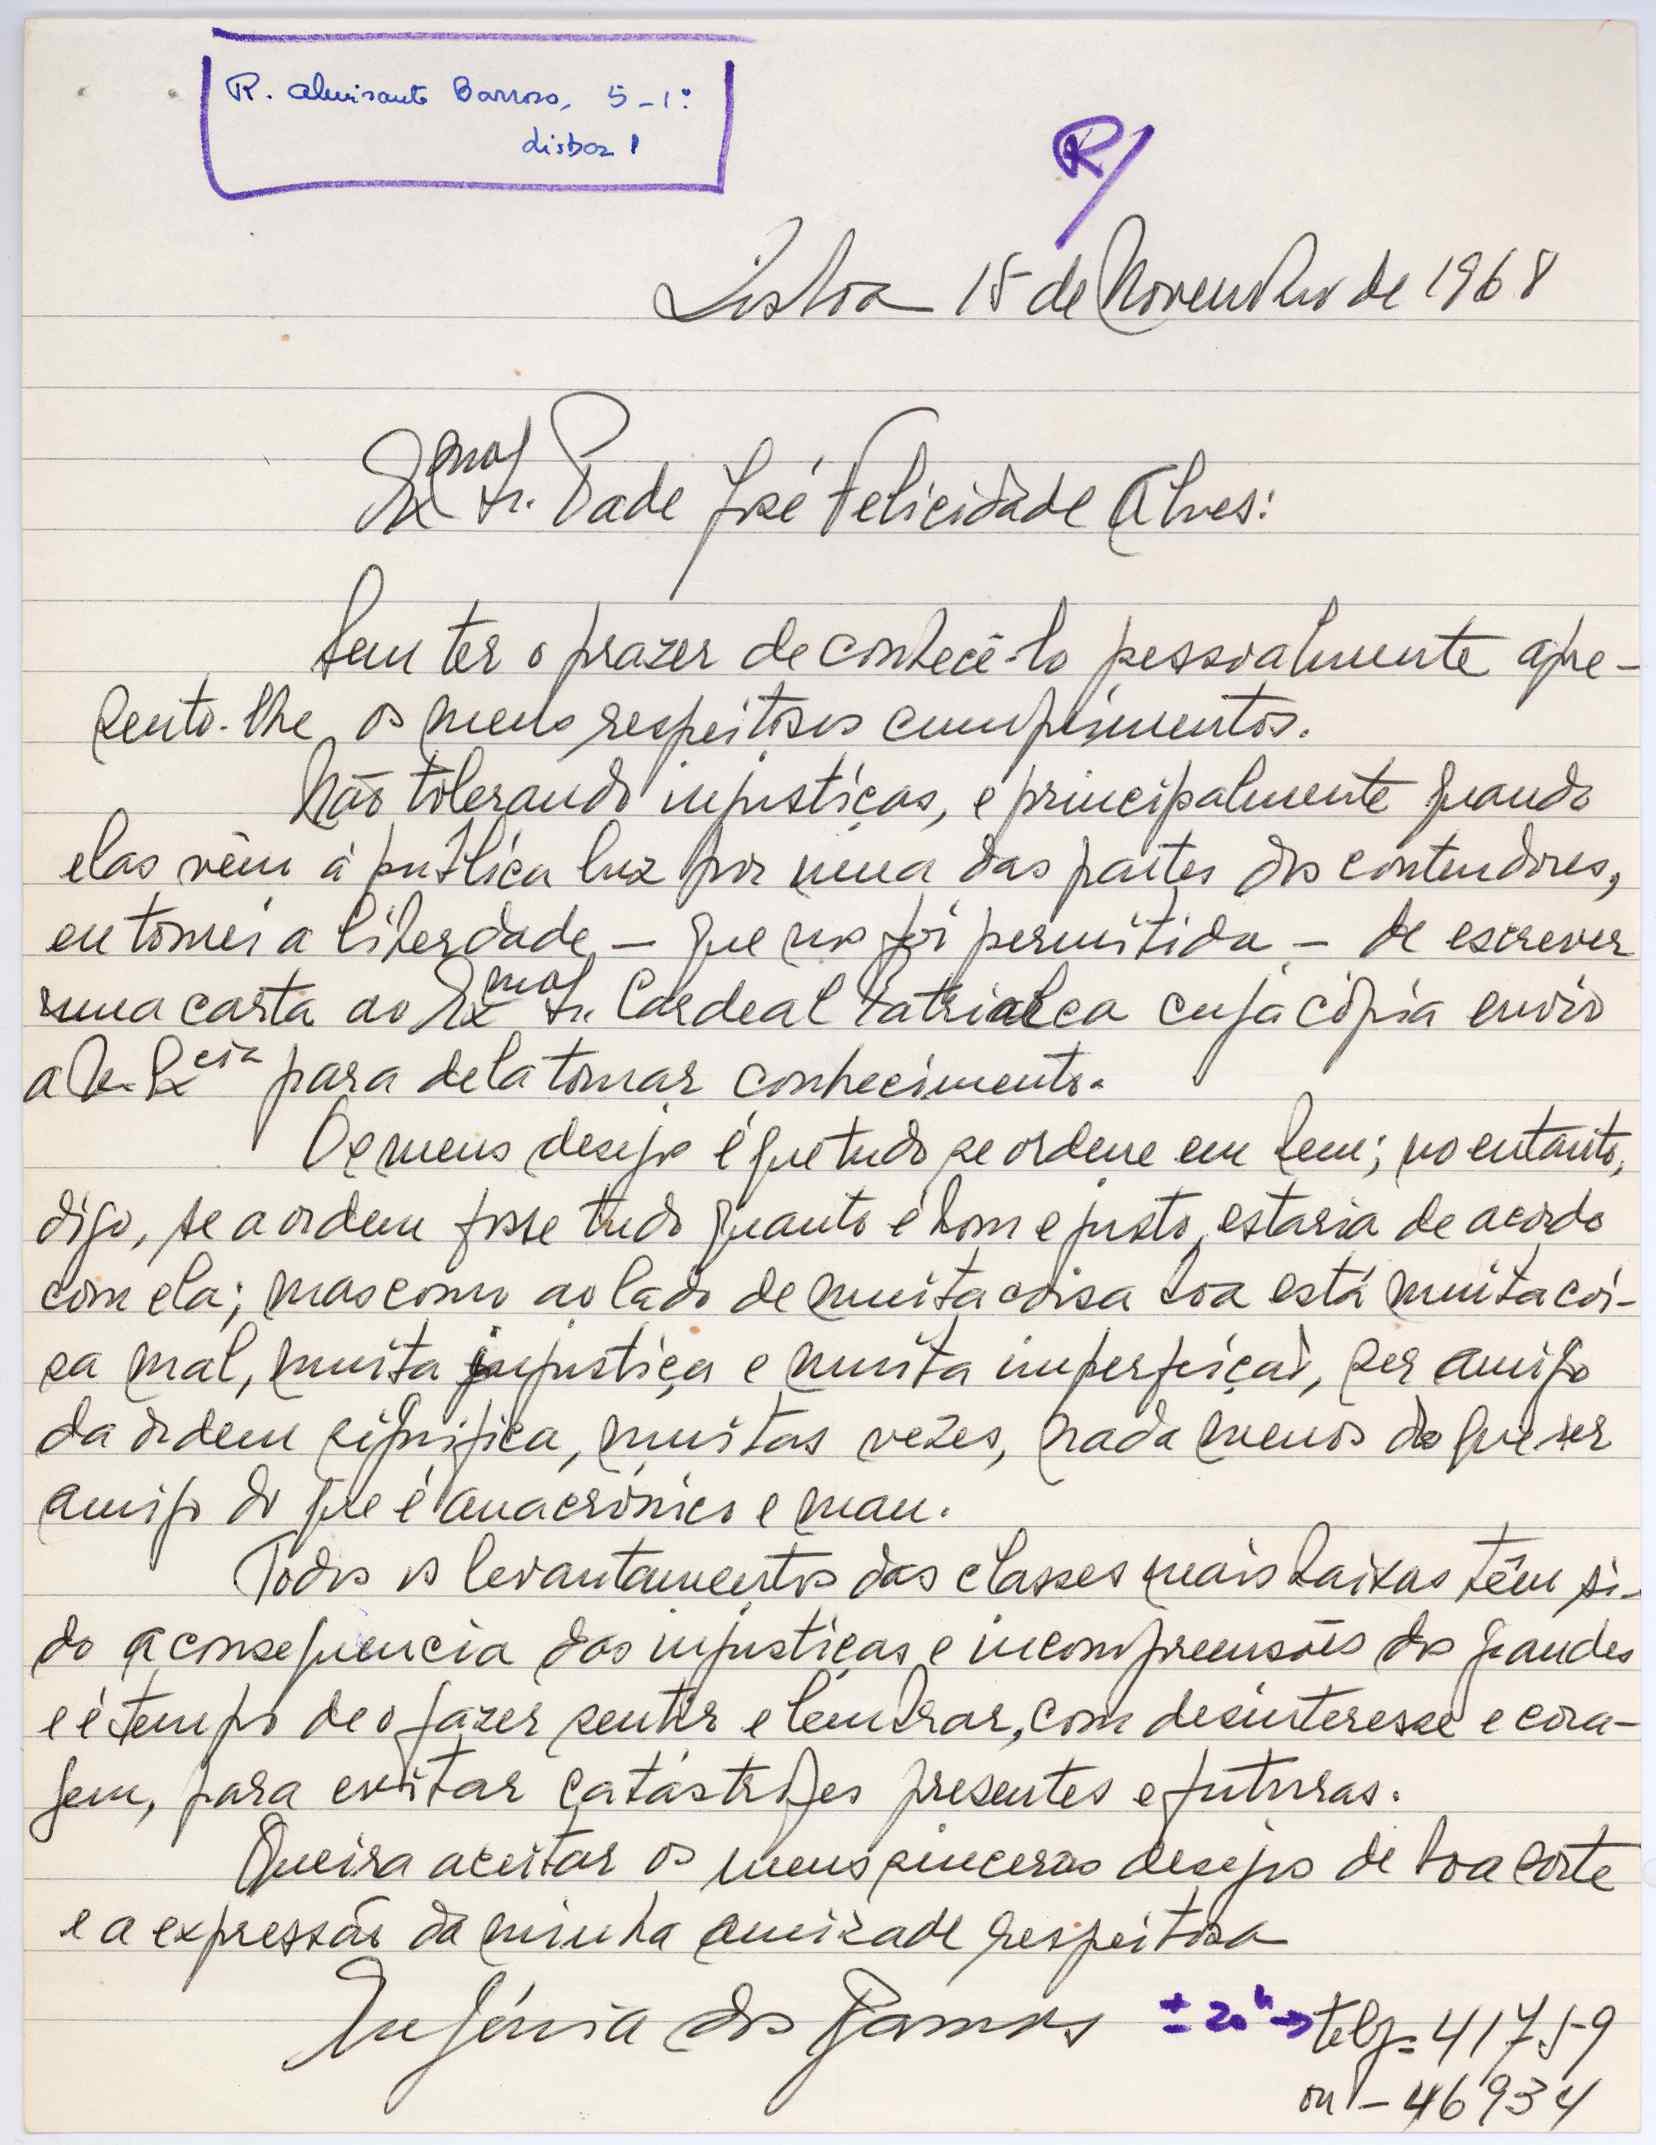 R. Almirante Barroso, 5-1º
Lisboa 1
R/
Lisboa 15 de Novembro de 1968
Exmo Sr. Padre José Felicidade Alves:
Sem ter o prazer de conhecê-lo pessoalmente apre-
sento-lhe os meus respeitosos cumprimentos.
Não tolerando injustiças, e principalmente quando
elas vêm à pública luz por uma das partes dos contendores,
eu tomei a liberdade - que nos foi permitida - de escrever
uma carta ao Exmo Sr. Cardeal Patriarca cuja cópia envio
a V. Excia para dela tomar conhecimento.
Os meus desejos é que tudo se ordene em bem; no entanto,
digo, se a ordem fosse tudo quanto é bom e justo, estaria de acordo
com ela; mas como ao lado de muita coisa boa está muita coi-
sa mal, muita injustiça e muita imperfeição, ser amigo
da ordem significa, muitas vezes, nada menos do que ser
amigo do que é anacrónico e mau.
Todos os levantamentos das classes mais baixas têm si-
do a consequencia das injustiças e incompreensões dos grandes
e é tempo de o fazer sentir e lembrar, com desinteresse e cora-
gem, para evitar catástrofes presentes e futuras.
Queira aceitar os meus sinceros desejos de boa sorte
e a expressão da minha amizade respeitosa
Eugénia dos Ramos ± 20h → telf = 41759
ou - 46934